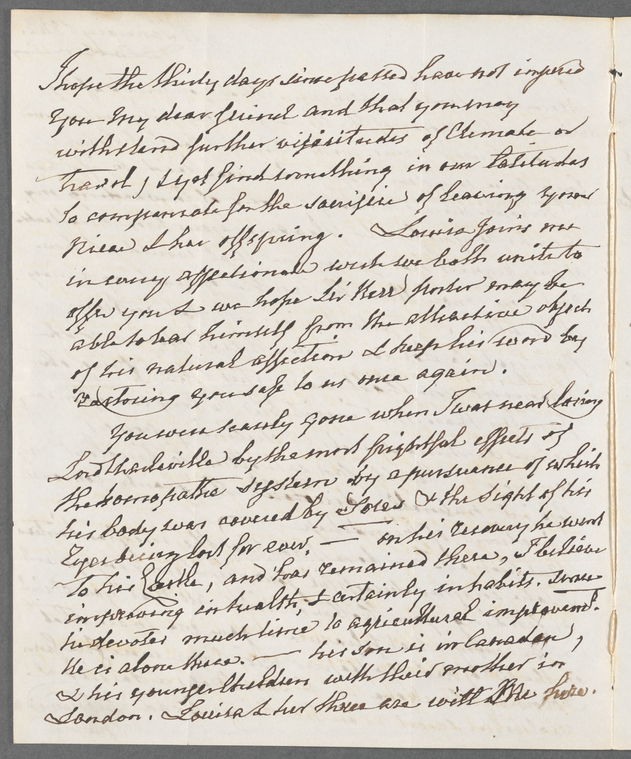 I hope the thirty days since passed have not injured
you my dear friend and that you may
withstand further vicissitudes of Climate or
travel, & yet find something in our latitudes
to compensate for the sacrifice of leaving your
Niece & her offspring. Louisa joins me
in every affectionate wish we both unite to
offer you & we hope Sir Kerr porter may be
able to tear himself from the attractive object
of his natural affection & keep his word by
restoring you safe to us once again.
You were scarcely gone when I was near losing
Lord by the most frightful effects of
the homopathic system by a pursuance of which
his body was covered by Sores & the sight of his
Eyes being lost for ever. — on his recovery he went
to his Castle, and has remained there, I believe
improving in health, & certainly in habits. Since
he devotes much time to agricultural improvemt.
He is alone there. — his son is in Canada,
& his younger children with their mother in
London. Louisa & her three are with Me here.